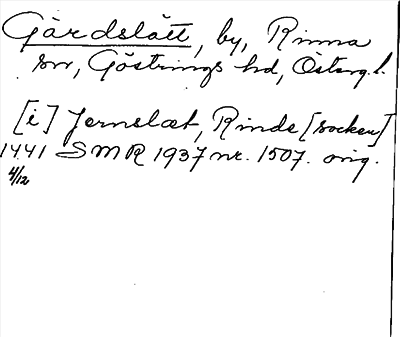 Gärdslätt, by, Rinna
sn, Göstrings hd, Österg. l.
[i] Jernslæt, Rinde [socken]
1441 SMR 1937 nr. 1507. orig.
4/12